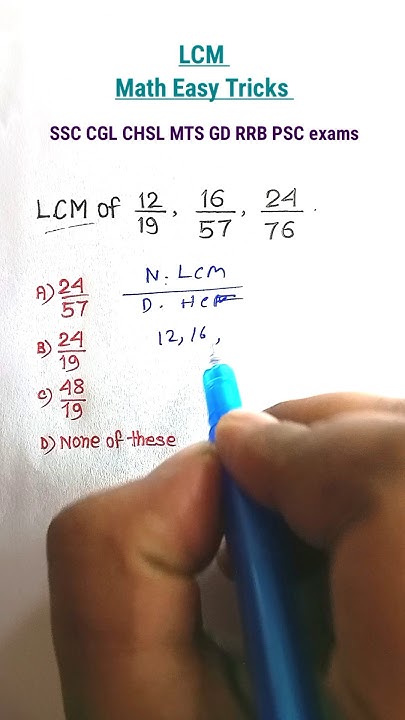 LCM
Math Easy Tricks
SSC CGL CHSL MTS GD RRB PSC exams
LCM of 12/19, 16/57, 24/76.
N. LCM
D. HCF
12, 16,
A) 24/57
B) 24/19
C) 48/19
D) None of these